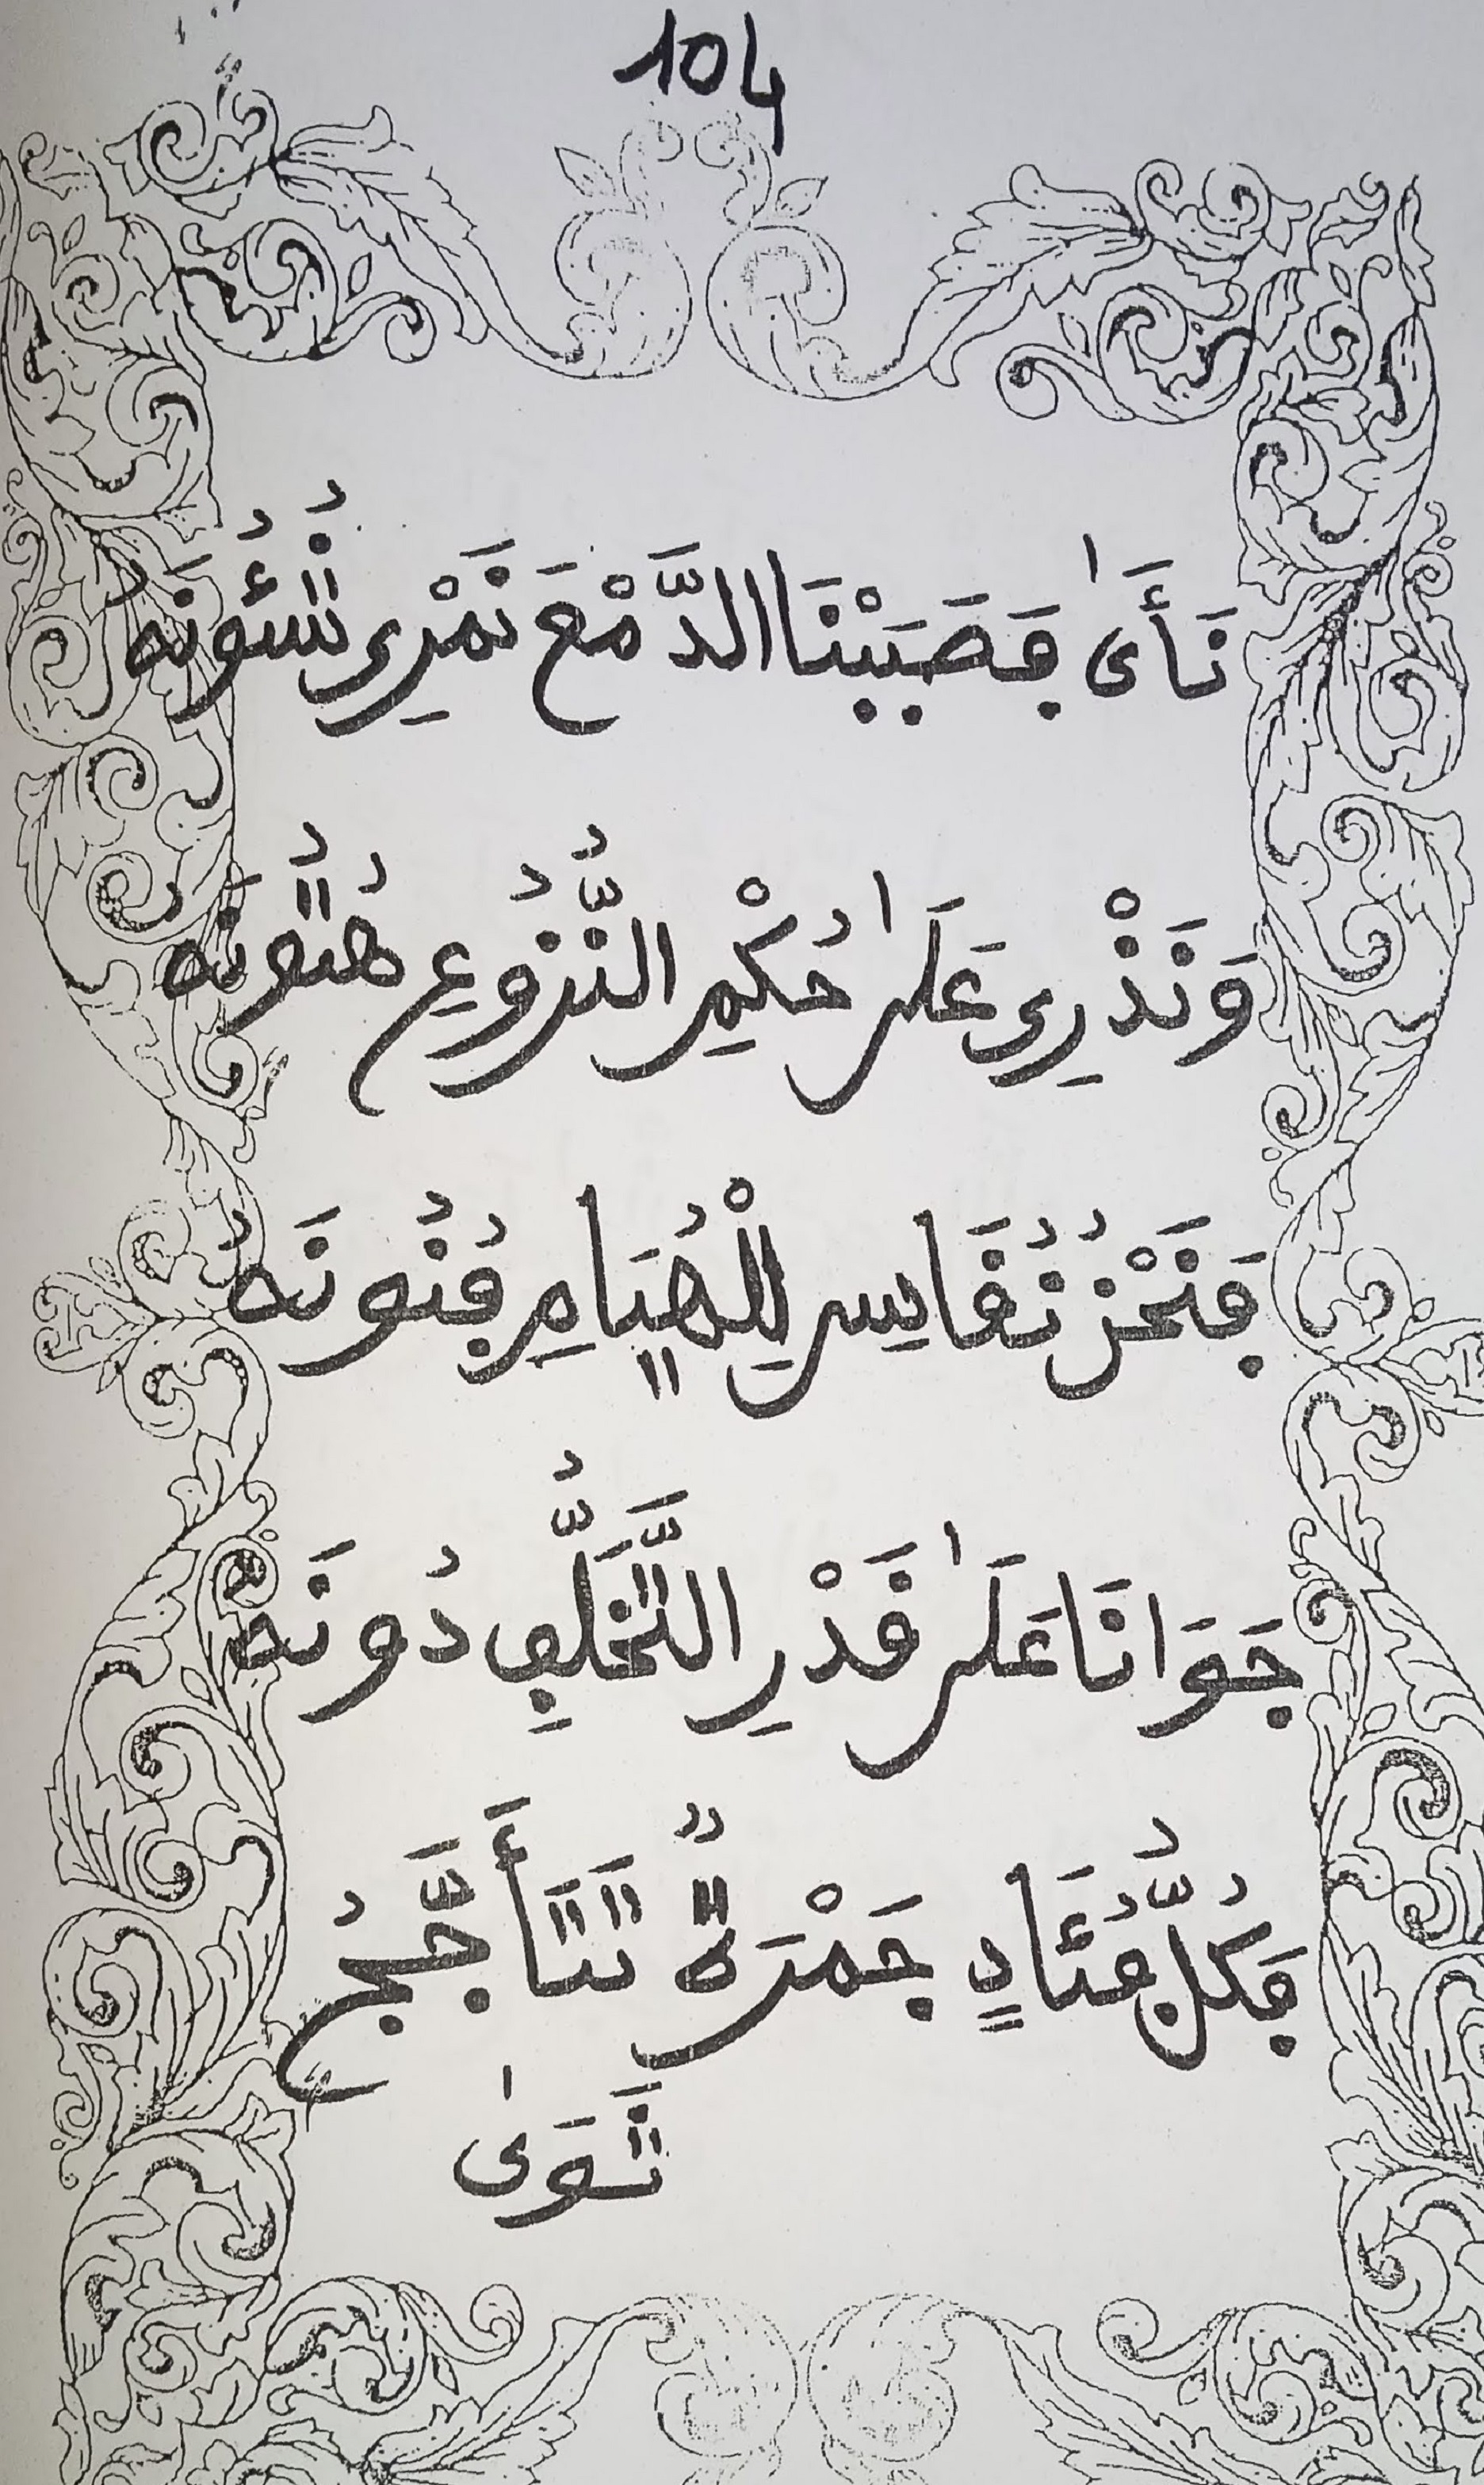 104
نَأَىٰ فَصَبَبْنَا الدَّمْعَ نَمْرِي شُئُونَهُ
وَنَذْرِي عَلَىٰ حُكْمِ النُّزُوعِ هُتُونَهُ
فَنَحْنُ نُقَاسِي لِلْهُيَامِ فُنُونَهُ
جَوَانَا عَلَىٰ قَدْرِ التَّخَلُّفِ دُونَهُ
فَكُلُّ فُئَادٍ جَمْرَةٌ تَتَأَجَّجُ
ثَوَىٰ